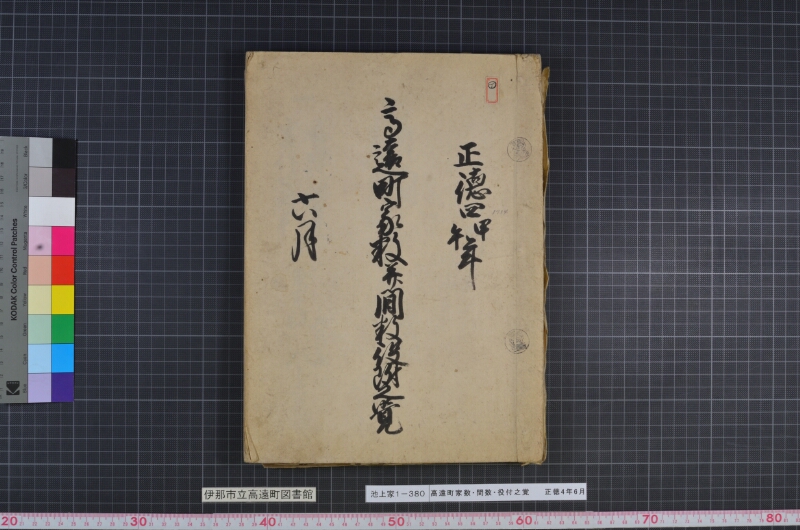 正徳四甲午年
高遠町家数并間数役附之覚
六月
伊那市立高遠町図書館
池上家1－380 高遠町家数・間数・役付之覚 正徳4年6月
KODAK Color Control Patches
20 30 40 50 60 70 80